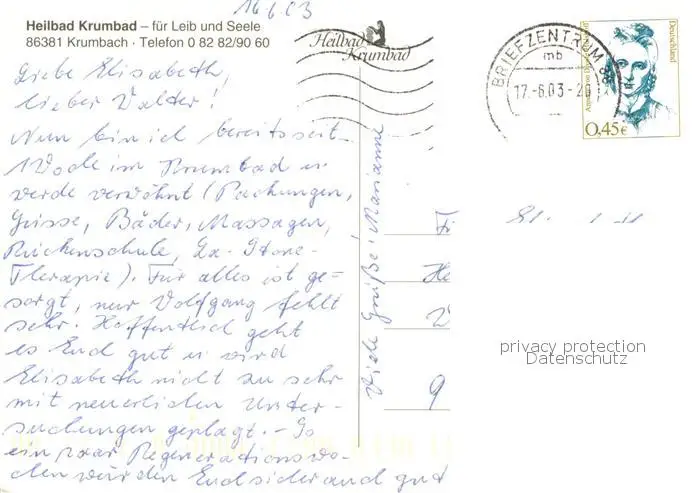 16.6.03
Heilbad Krumbad – für Leib und Seele
86381 Krumbach · Telefon 0 82 82/90 60
Heilbad
Krumbad
BRIEFZENTRUM 86
mb
17.-6.03-20
Deutschland
0,45€
Liebe Elisabeth,
lieber Walter!
Nun bin ich bereits seit
1 Woche im Krumbad u.
werde verwöhnt (Packungen,
Güsse, Bäder, Massagen,
Rückenschule, La-Stone-
Therapie). Für alles ist ge-
sorgt, nur Wolfgang fehlt
sehr. Hoffentlich geht
es Euch gut u. wird
Elisabeth nicht zu sehr
mit neuerlichen Unter-
suchungen geplagt. – So
ein paar Regenerationswo-
chen würden Euch sicher auch gut
Viele Grüße! Marianne
Fr
He
W
9
privacy protection
Datenschutz